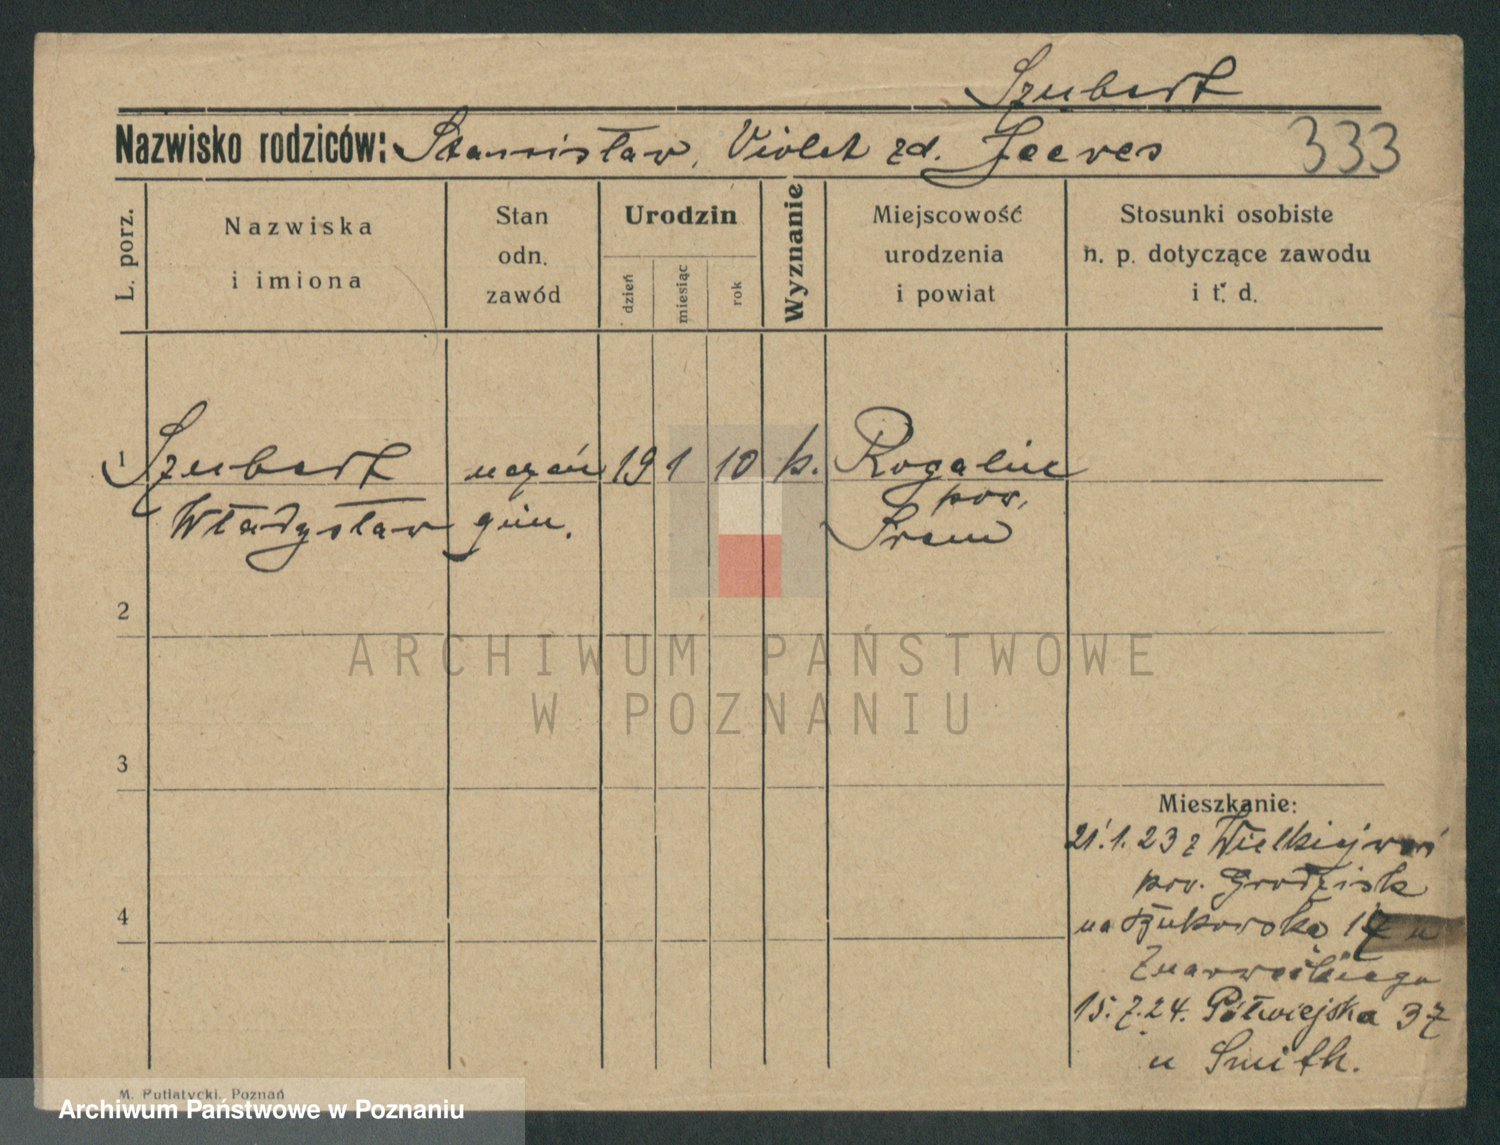 Szubert
Nazwisko rodziców: Stanisław, Violet zd. Jeeves 333
L. porz.
Nazwiska
i imiona
Stan
odn.
zawód
Urodzin
dzień
miesiąc
rok
Wyznanie
Miejscowość
urodzenia
i powiat
Stosunki osobiste
n. p. dotyczące zawodu
i t. d.
1 Szubert uczeń 19 1 10 k. Rogalin
Władysław gim. pow.
Śrem
2
3
4
Mieszkanie:
21.1.23 z Wielkiejwsi
pow. Grodzisk
na Żukowska 17 u
15.7.24. Półwiejska 37
u Smith.
M. Putiatycki, Poznań
ARCHIWUM PAŃSTWOWE
W POZNANIU
Archiwum Państwowe w Poznaniu